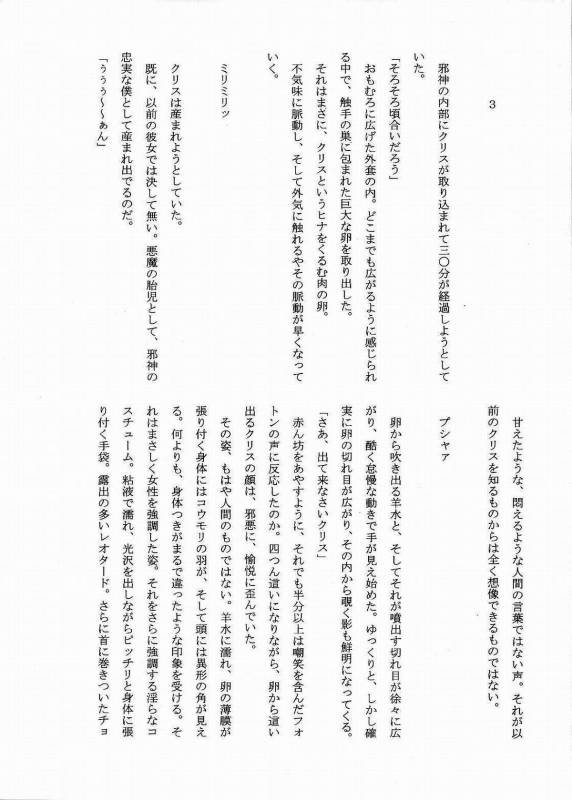 3
邪神の内部にクリスが取り込まれて三〇分が経過しようとして
いた。
「そろそろ頃合いだろう」
おもむろに広げた外套の内。どこまでも広がるように感じられ
る中で、触手の巣に包まれた巨大な卵を取り出した。
それはまさに、クリスというヒナをくるむ肉の卵。
不気味に脈動し、そして外気に触れるやその脈動が早くなって
いく。
ミリミリッ
クリスは産まれようとしていた。
既に、以前の彼女では決して無い。悪魔の胎児として、邪神の
忠実な僕として産まれ出でるのだ。
「ぅぅぅ〜〜ぁん」
甘えたような、悶えるような人間の言葉ではない声。それが以
前のクリスを知るものからは全く想像できるものではない。
プシャァ
卵から吹き出る羊水と、そしてそれが噴出す切れ目が徐々に広
がり、酷く怠慢な動きで手が見え始めた。ゆっくりと、しかし確
実に卵の切れ目が広がり、その内から覗く影も鮮明になってくる。
「さあ、出て来なさいクリス」
赤ん坊をあやすように、それでも半分以上は嘲笑を含んだフォ
トンの声に反応したのか。四つん這いになりながら、卵から這い
出るクリスの顔は、邪悪に、愉悦に歪んでいた。
その姿、もはや人間のものではない。羊水に濡れ、卵の薄膜が
張り付く身体にはコウモリの羽が、そして頭には異形の角が見え
る。何よりも、身体つきがまるで違ったような印象を受ける。そ
れはまさしく女性を強調した姿。それをさらに強調する淫らなコ
スチューム。粘液で濡れ、光沢を出しながらピッチリと身体に張
り付く手袋。露出の多いレオタード。さらに首に巻きついたチョ